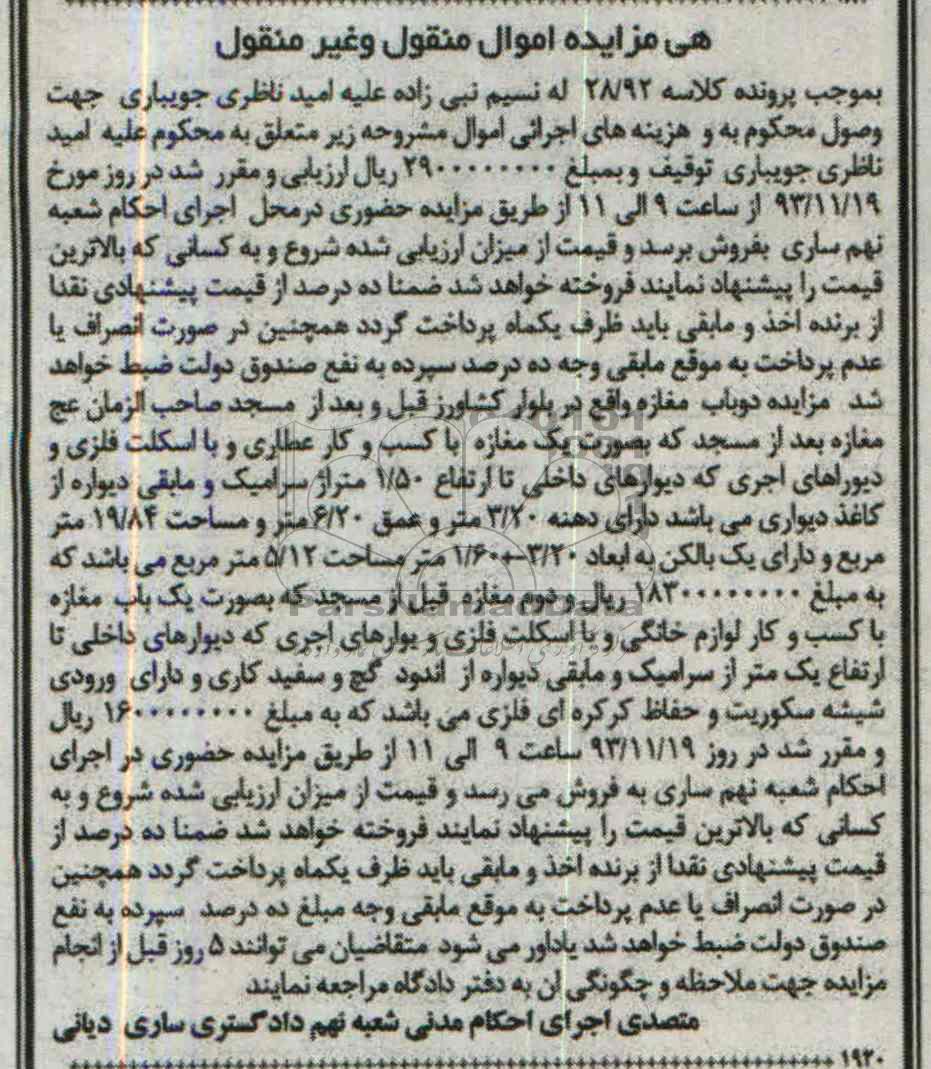 هی مزایده اموال منقول وغیر منقول
بموجب پرونده کلاسه ۲۸/۹۲ له نسیم نبی زاده علیه امید ناظری جویباری جهت
وصول محکوم به و هزینه های اجرائی اموال مشروحه زیر متعلق به محکوم علیه امید
ناظری جویباری توقیف و بمبلغ ۲۹۰۰۰۰۰۰۰۰ ریال ارزیابی و مقرر شد در روز مورخ
۹۳/۱۱/۱۹ از ساعت ۹ الی ۱۱ از طریق مزایده حضوری درمحل اجرای احکام شعبه
نهم ساری بفروش برسد و قیمت از میزان ارزیابی شده شروع و به کسانی که بالاترین
قیمت را پیشنهاد نمایند فروخته خواهد شد ضمنا ده درصد از قیمت پیشنهادی نقدا
از برنده اخذ و مابقی باید ظرف یکماه پرداخت گردد همچنین در صورت انصراف یا
عدم پرداخت به موقع مابقی وجه ده درصد سپرده به نفع صندوق دولت ضبط خواهد
شد مزایده دوباب مغازه واقع در بلوار کشاورز قبل و بعد از مسجد صاحب الزمان عج
مغازه بعد از مسجد که بصورت یک مغازه با کسب و کار عطاری و با اسکلت فلزی و
دیوراهای اجری که دیوارهای داخلی تا ارتفاع ۱/۵۰ متراژ سرامیک و مابقی دیواره از
کاغذ دیواری می باشد دارای دهنه ۳/۲۰ متر و عمق ۶/۲۰ متر و مساحت ۱۹/۸۴ متر
مربع و دارای یک بالکن به ابعاد ۳/۲۰+۱/۶۰ متر مساحت ۵/۱۲ متر مربع می باشد که
به مبلغ ۱۸۳۰۰۰۰۰۰۰۰ ریال و دوم مغازه قبل از مسجد که بصورت یک باب مغازه
ParsNamadData
با کسب و کار لوازم خانگی و با اسکلت فلزی و یوارهای اجری که دیوارهای داخلی تا
ارتفاع یک متر از سرامیک و مابقی دیواره از اندود گچ و سفید کاری و دارای ورودی
شیشه سکوریت و حفاظ کرکره ای فلزی می باشد که به مبلغ ۱۶۰۰۰۰۰۰۰۰۰ ریال
و مقرر شد در روز ۹۳/۱۱/۱۹ ساعت ۹ الی ۱۱ از طریق مزایده حضوری در اجرای
احکام شعبه نهم ساری به فروش می رسد و قیمت از میزان ارزیابی شده شروع و به
کسانی که بالاترین قیمت را پیشنهاد نمایند فروخته خواهد شد ضمنا ده درصد از
قیمت پیشنهادی نقدا از برنده اخذ و مابقی باید ظرف یکماه پرداخت گردد همچنین
در صورت انصراف یا عدم پرداخت به موقع مابقی وجه مبلغ ده درصد سپرده به نفع
صندوق دولت ضبط خواهد شد یاداور می شود متقاضیان می توانند ۵ روز قبل از انجام
مزایده جهت ملاحظه و چگونگی ان به دفتر دادگاه مراجعه نمایند
متصدی اجرای احکام مدنی شعبه نهم دادگستری ساری دیانی
۱۹۲۰